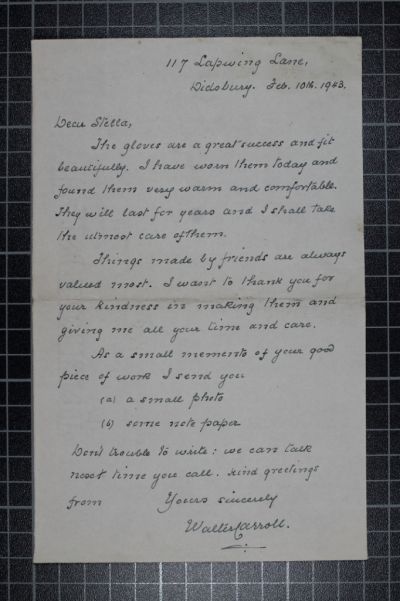 117 Lapwing Lane,
Didsbury. Feb. 10th. 1943.
Dear Stella,
The gloves are a great success and fit
beautifully. I have worn them today and
found them very warm and comfortable.
They will last for years and I shall take
the utmost care of them.
Things made by friends are always
valued most. I want to thank you for
your kindness in making them and
giving me all your time and care.
As a small memento of your good
piece of work I send you
(a) a small photo
(b) some note paper
Don't trouble to write: we can talk
next time you call. Kind greetings
from Yours sincerely
Walter Carroll.